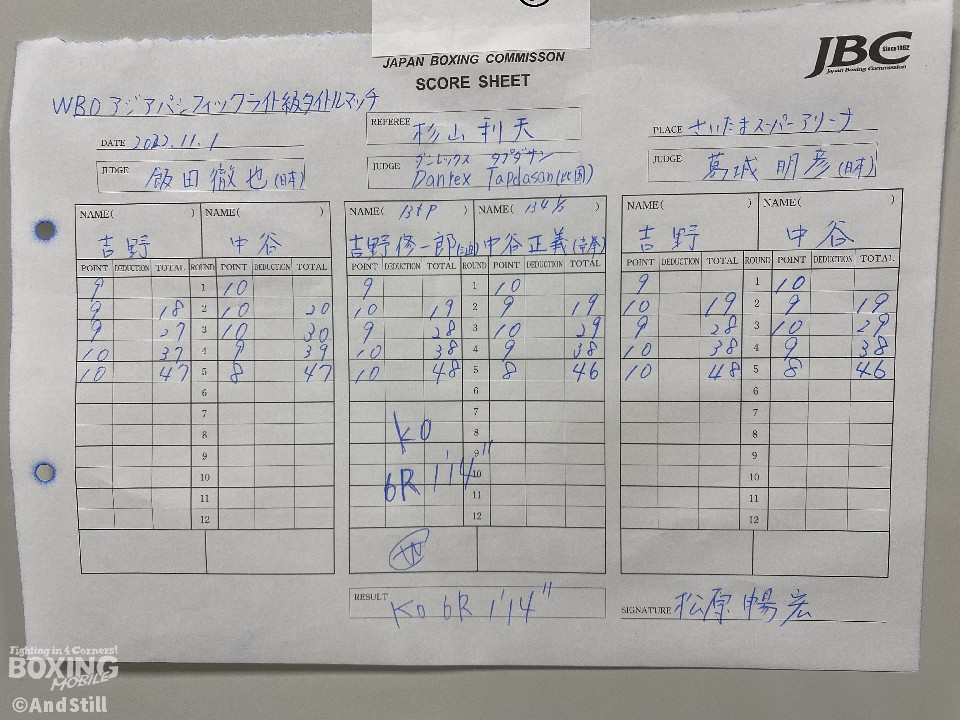 JAPAN BOXING COMMISSON
SCORE SHEET
JBC Since 1952
Japan Boxing Commission
WBOアジアパシフィックライト級タイトルマッチ
DATE 2022.11.1
REFEREE 杉山利夫
PLACE さいたまスーパーアリーナ
JUDGE 飯田徹也(日本)
JUDGE ダンレックス タプダサン
Danrex Tapdasan(比国)
JUDGE 葛城明彦(日本)
NAME( ) NAME( ) NAME( ) NAME( 134 1/2 ) NAME( ) NAME( )
吉野 中谷 吉野修一郎(三迫) 中谷正義(帝拳) 吉野 中谷
POINT DEDUCTION TOTAL ROUND POINT DEDUCTION TOTAL POINT DEDUCTION TOTAL ROUND POINT DEDUCTION TOTAL POINT DEDUCTION TOTAL ROUND POINT DEDUCTION TOTAL
9 1 10 9 1 10 9 1 10
9 18 2 10 20 10 19 2 9 19 10 19 2 9 19
9 27 3 10 30 9 28 3 10 29 9 28 3 10 29
10 37 4 9 39 10 38 4 9 38 10 38 4 9 38
10 47 5 8 47 10 48 5 8 46 10 48 5 8 46
6 6 6
7 7 7
8 KO 8 8
9 9 9
10 6R 1'14" 10 10
11 11 11
12 12 12
W
RESULT KO 6R 1'14"
SIGNATURE 松原暢宏
Fighting in 4 Corners!
BOXING
MOBILE
©AndStill